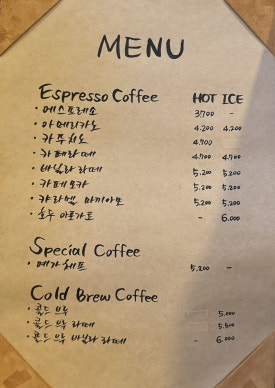 MENU
Espresso Coffee HOT ICE
· 에스프레소 3.700 -
· 아메리카노 4.200 4.200
· 카푸치노 4.700
· 카페라떼 4.700 4.700
· 바닐라 라떼 5.200 5.200
· 카페모카 5.200 5.200
· 카라멜 마끼아또 5.200 5.200
· 호두 아포가토 - 6.000
Special Coffee
· 메가체프 5.200 -
Cold Brew Coffee
· 콜드 브루 5.000
· 콜드 브루 라떼 5.500
· 콜드 브루 바닐라 라떼 - 6.000